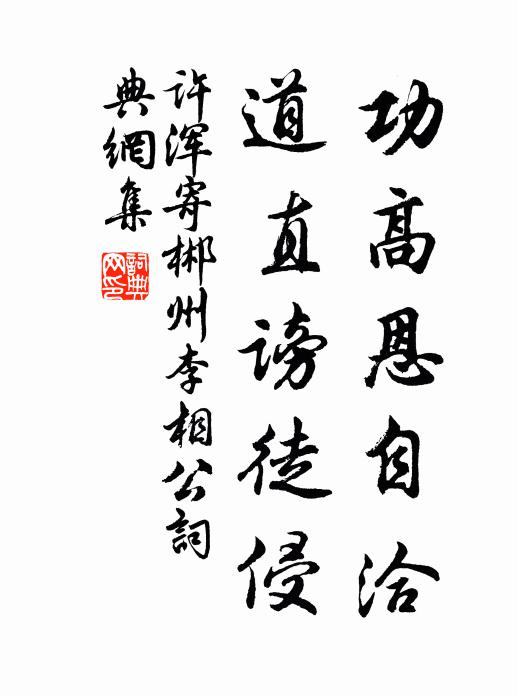 功高恩自洽
道直謗徒侵
许浑寄郴州李相公詞
典網集
詞典
网印